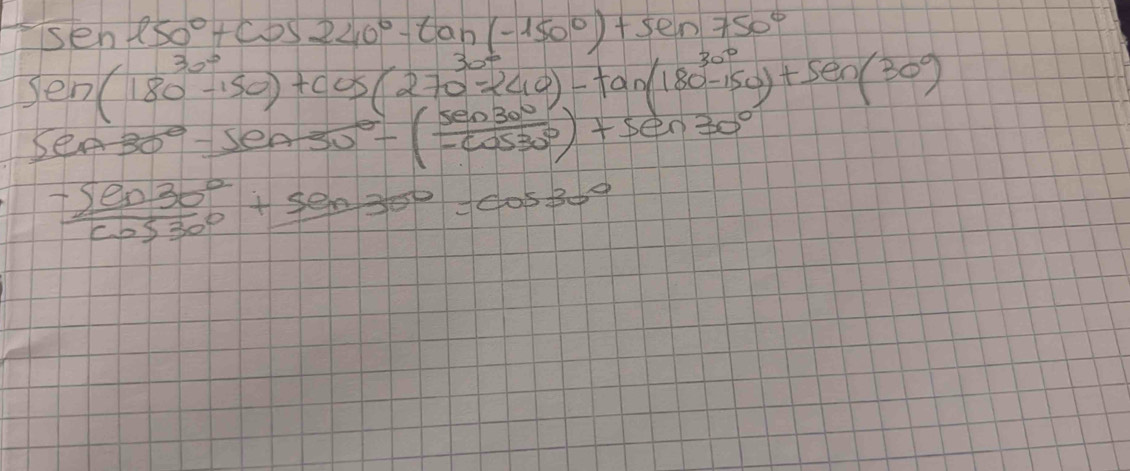 sen 150° + cos 240° - tan(-150°) + sen 750°
30° 30° 30°
sen(180 - 150) + cos(270 - 240) - tan(180 - 150) + sen(30°)
sen 30° - sen 30° - (sen 30° / -cos 30°) + sen 30°
-sen 30° / cos 30° + sen 30° - cos 30°